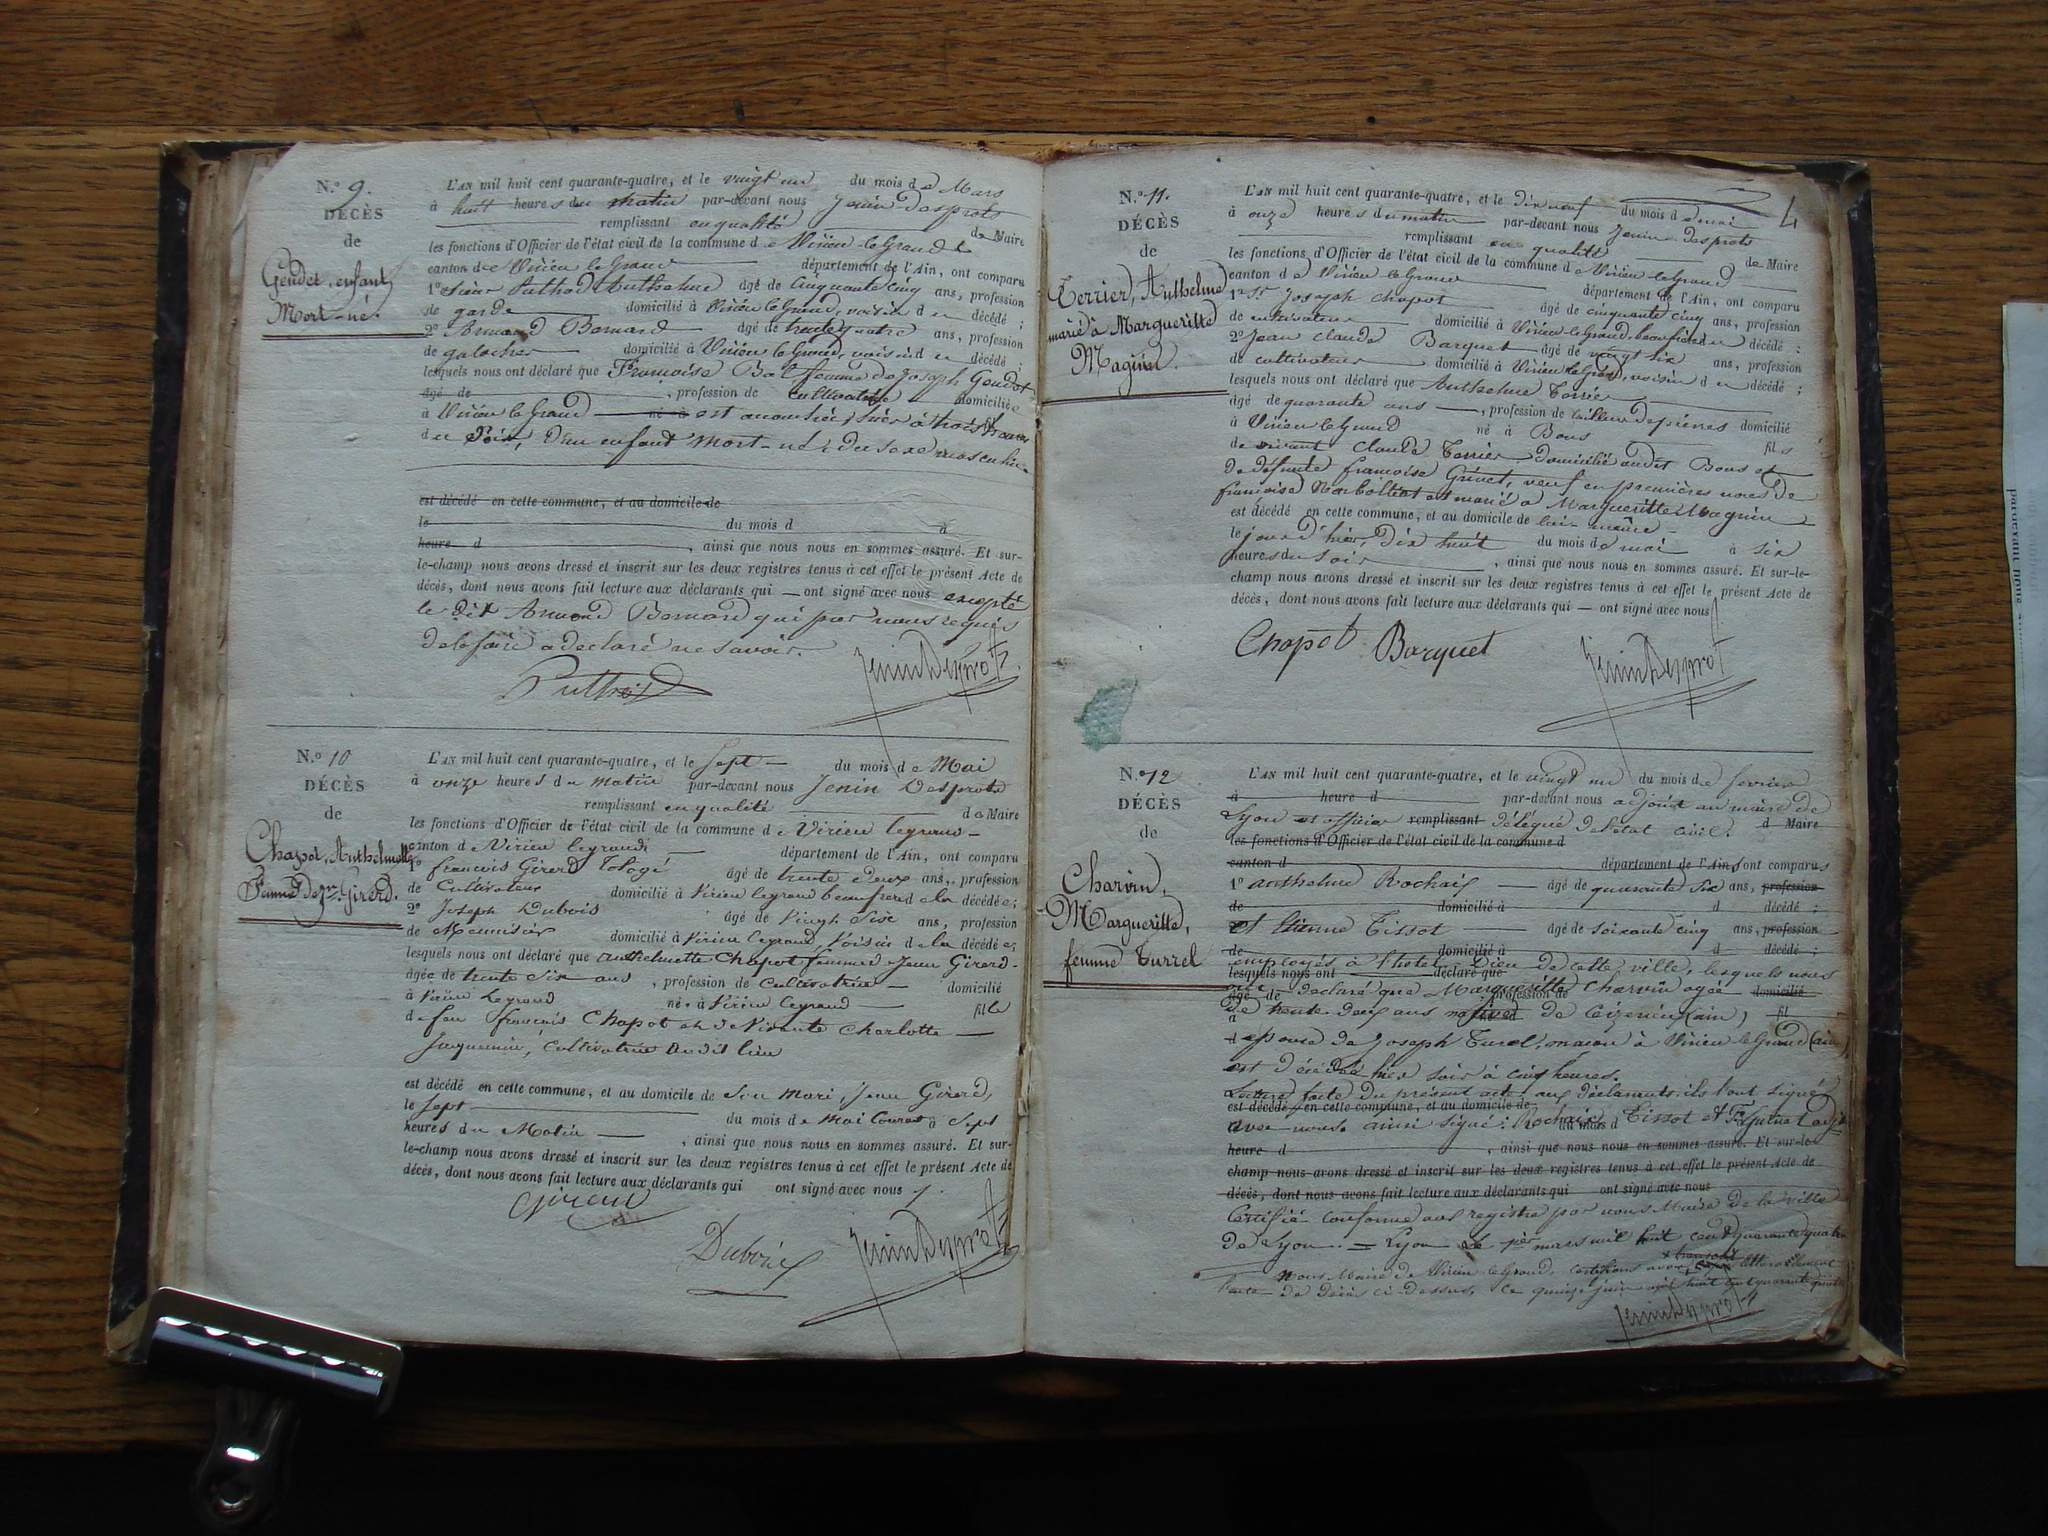 N.º 9.
DÉCÈS
de
Geudet, enfant
Mort-né.
L'AN mil huit cent quarante-quatre, et le vingt un du mois de Mars
à huit heures du matin par-devant nous Jenin Desprots
remplissant en qualité de Maire
les fonctions d'Officier de l'état civil de la commune de Virieu-le-Grand
canton de Virieu le Grand département de l'Ain, ont comparu
1º Sieur Puthod Anthelme âgé de Cinquante cinq ans, profession
de garde domicilié à Virieu le Grand, voisin du décédé;
2º Armand Bernard âgé de trente quatre ans, profession
de galocher domicilié à Virieu le Grand, voisin du décédé;
lesquels nous ont déclaré que Françoise Bal femme de Joseph Geudet
âgé de , profession de cultivateur domiciliée
à Virieu le Grand né à est accouchée, hier à trois heures
du Soir, d'un enfant mort-né, du sexe masculin.
est décédé en cette commune, et au domicile de
le du mois d à
heure d , ainsi que nous nous en sommes assuré. Et sur-
le-champ nous avons dressé et inscrit sur les deux registres tenus à cet effet le présent Acte de
décès, dont nous avons fait lecture aux déclarants qui — ont signé avec nous excepté
le dit Armand Bernard qui par nous requis
de le faire a déclaré ne savoir.
Puthod
Jenin Desprots
N.º 10
DÉCÈS
de
Chapot, Anthelmette
femme de Jn. Girerd.
L'AN mil huit cent quarante-quatre, et le sept — du mois de Mai
à onze heures du matin par-devant nous Jenin Desprots
remplissant en qualité de Maire
les fonctions d'Officier de l'état civil de la commune de Virieu legrand —
canton de Virieu legrand département de l'Ain, ont comparu
1º francois Girerd âgé de trente deux ans, profession
de Cultivateur domicilié à Virieu legrand beaufrere de la décédée;
2º Joseph Dubois âgé de Vingt Six ans, profession
de Menuisier domicilié à Virieu legrand, Voisin de la décédée;
lesquels nous ont déclaré que anthelmette Chapot femme de Jean Girerd
âgée de trente Six ans , profession de Cultivatrice — domicilié
à Virieu Legrand née à Virieu legrand — fille
de feu francois Chapot et de Vivante Charlotte —
Jacquemin, Cultivatrice audit lieu
est décédé en cette commune, et au domicile de Son mari, Jean Girerd,
le sept du mois de mai Courant à Sept
heures du Matin — , ainsi que nous nous en sommes assuré. Et sur-
le-champ nous avons dressé et inscrit sur les deux registres tenus à cet effet le présent Acte de
décès, dont nous avons fait lecture aux déclarants qui ont signé avec nous
Girerd
Dubois
Jenin Desprots
4
N.º 11.
DÉCÈS
de
Terrier, Anthelme
marié à Margueritte
Magnin.
L'AN mil huit cent quarante-quatre, et le dix neuf du mois de mai
à onze heures du matin par-devant nous Jenin Desprots
remplissant en qualité de Maire
les fonctions d'Officier de l'état civil de la commune de Virieu le Grand
canton de Virieu le Grand département de l'Ain, ont comparu
1º Sr. Joseph Chapot âgé de cinquante cinq ans, profession
de cultivateur domicilié à Virieu le Grand, beaufrère du décédé;
2º Jean Claude Barquet âgé de vingt six ans, profession
de cultivateur domicilié à Virieu le Grand, voisin du décédé;
lesquels nous ont déclaré que Anthelme Terrier
âgé de quarante ans — , profession de tailleur de pierres domicilié
à Virieu le Grand né à Bons fils
de vivant Claude Terrier domicilié audit Bons et
de défunte françoise Grivet, veuf en premières noces de
françoise et marié à Margueritte Magnin
est décédé en cette commune, et au domicile de lui-même
le jour d'hier, dix huit du mois de mai à six
heures du soir , ainsi que nous nous en sommes assuré. Et sur-le-
champ nous avons dressé et inscrit sur les deux registres tenus à cet effet le présent Acte de
décès, dont nous avons fait lecture aux déclarants qui — ont signé avec nous
Chapot Barquet
Jenin Desprots
N.º 12
DÉCÈS
de
Charvin,
Margueritte,
femme Turrel
L'AN mil huit cent quarante-quatre, et le vingt un du mois de fevrier
à heure d par-devant nous adjoint au maire de
Lyon et officier remplissant délégué de l'état civil. d Maire
les fonctions d'Officier de l'état civil de la commune d
canton d département de l'Ain sont comparus
1º anthelme Rochaix — âgé de quarante six ans, profession
de domicilié à d décédé;
et Etienne Tissot — âgé de soixante cinq ans, profession
de domicilié à d décédé;
employés à l'hotel-Dieu de cette ville, lesquels nous
lesquels nous ont déclaré que
ont déclaré que Margueritte Charvin agée
âgé de profession de domicilié
de trente deux ans native de Ceizerieu (ain)
à né à fil
épouse de Joseph Turel, macon à Virieu le Grand (ain),
est décédée hier soir à cinq heures.
Lecture faite du présent acte aux déclarants ils l'ont signé
est décédé en cette commune, et au domicile de
avec nous. ainsi signé: Rochaix Tissot et
heure d , ainsi que nous nous en sommes assuré. Et sur-le-
champ nous avons dressé et inscrit sur les deux registres tenus à cet effet le présent Acte de
décès, dont nous avons fait lecture aux déclarants qui ont signé avec nous
Certifié conforme aux registre par nous Maire de la ville
de Lyon. — Lyon le 1er mars mil huit cent quarante quatre
Nous Maire de Virieu le Grand, certifions avoir transcrit littéralement
l'acte de décès ci-dessus, ce quinze juin mil huit cent quarante quatre
Jenin Desprots